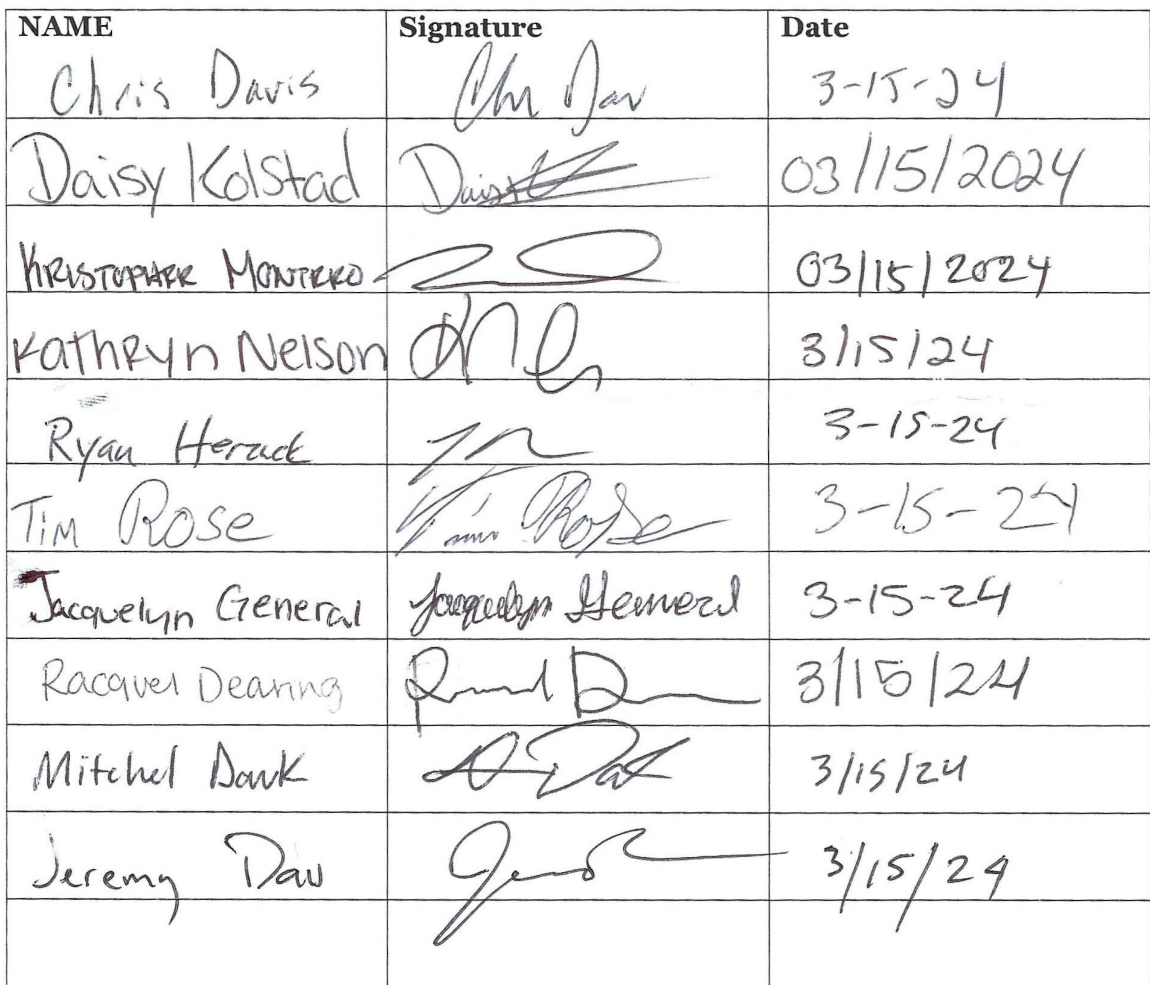 NAME Signature Date
Chris Davis 3-15-24
Daisy Kolstad 03/15/2024
KRISTOPHER MONTERRO 03/15/2024
Kathryn Nelson 3/15/24
Ryan 3-15-24
Tim Rose Tim Rose 3-15-24
Jacquelyn General Jacquelyn General 3-15-24
Racquel Dearing 3/15/24
Mitchel 3/15/24
Jeremy 3/15/24